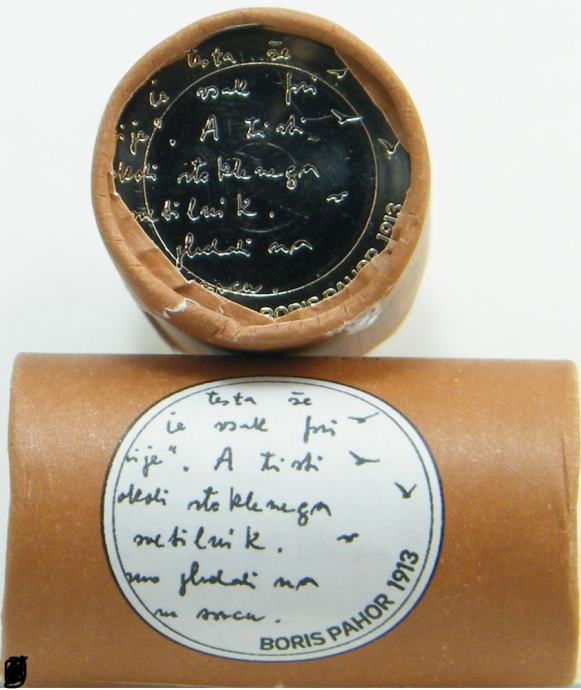 testa še
vsak pri
ije". A tisti
okoli steklenega
svetilnik.
gledali na
BORIS PAHOR 1913
testa še
vsak pri
ije". A tisti
okoli steklenega
svetilnik.
smo gledali na
soncu.
BORIS PAHOR 1913